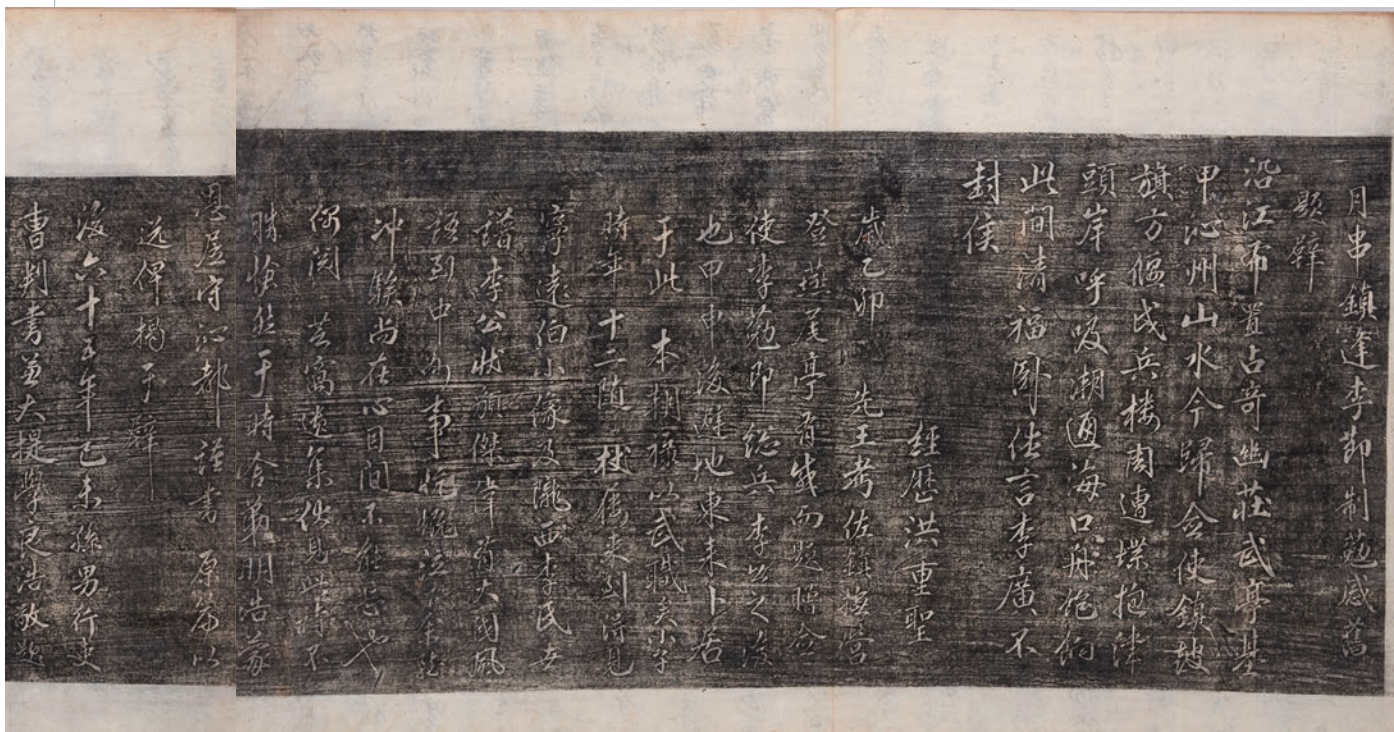 月串鎮逢李節制葂感舊
題壁
沿江布置占奇幽莊武亭基
甲沁州山水今歸僉使鎮鼓
旗方偃戍兵樓周遭堞抱津
頭岸呼吸潮通海口舟飽
此間清福休言李廣不
封侯
經歷洪重聖
歲乙卯 先王考佐鎮撫營
登燕尾亭有感而題贈僉
使李葂即総兵李公之後
也甲申後避地東来卜居
于此 本朝以武職小子
時年十二随 杖屨来到得見
寧遠伯小像及隴西李氏世
譜李公狀貌傑偉有大國風
語到中州事慷慨泣余雖
沖騃尚在心目間不能忘也
偶閱 芸窩遺集伏見此詩不
勝愴然于時舍弟明浩蒙
恩居守沁都謹書 原篇以
送俾揭于壁
後六十五年己未孫男行吏
曹判書兼大提學良浩敬題